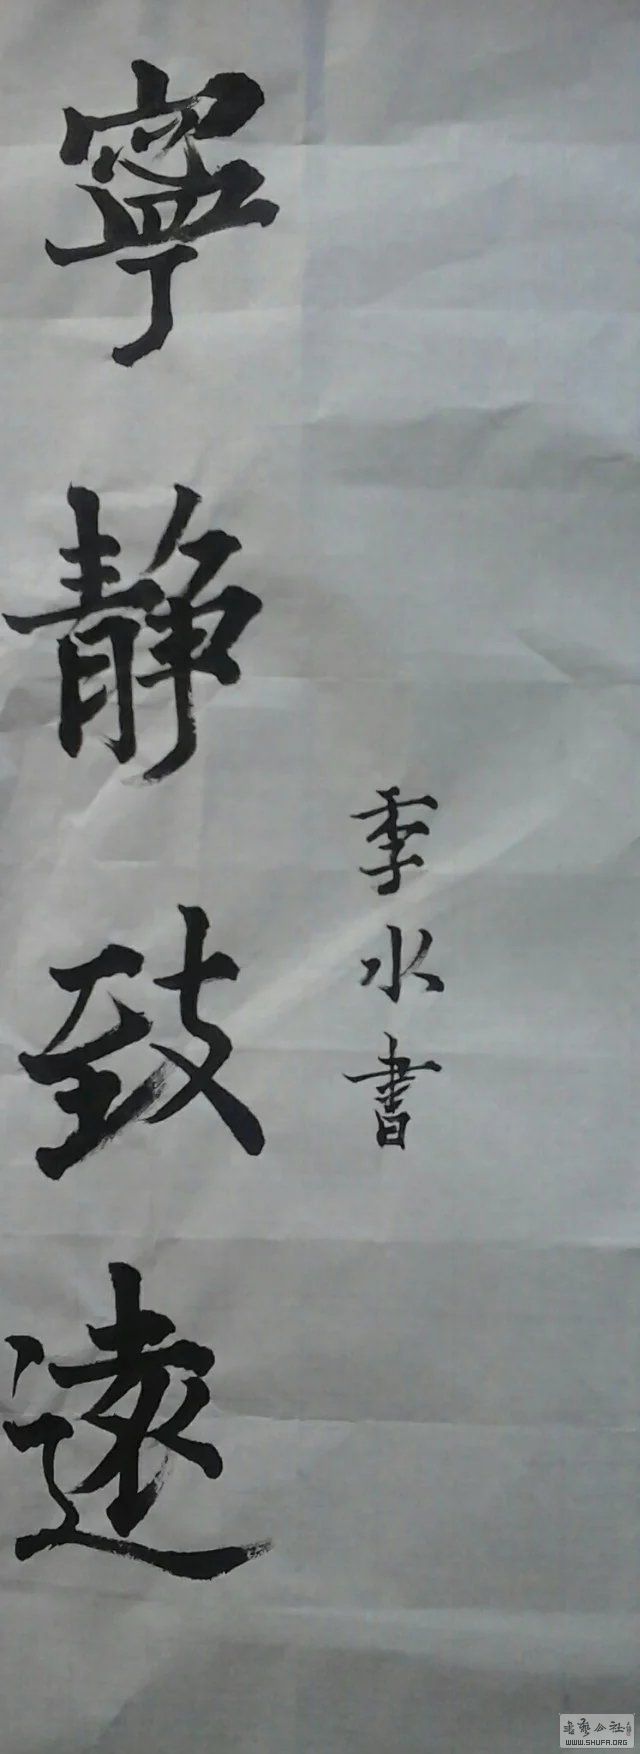 寧靜致遠
季水書
书艺公社
WWW.SHUFA.ORG